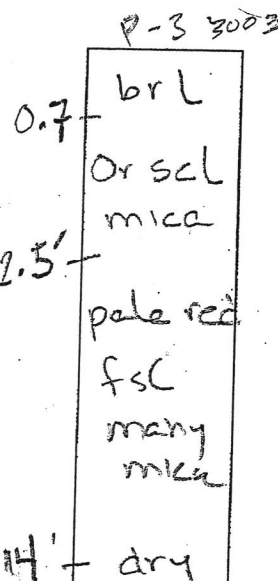 P-3 3003
br L
0.7
Or scl
mica
2.5'
pale red
fsl
many
mica
14' dry